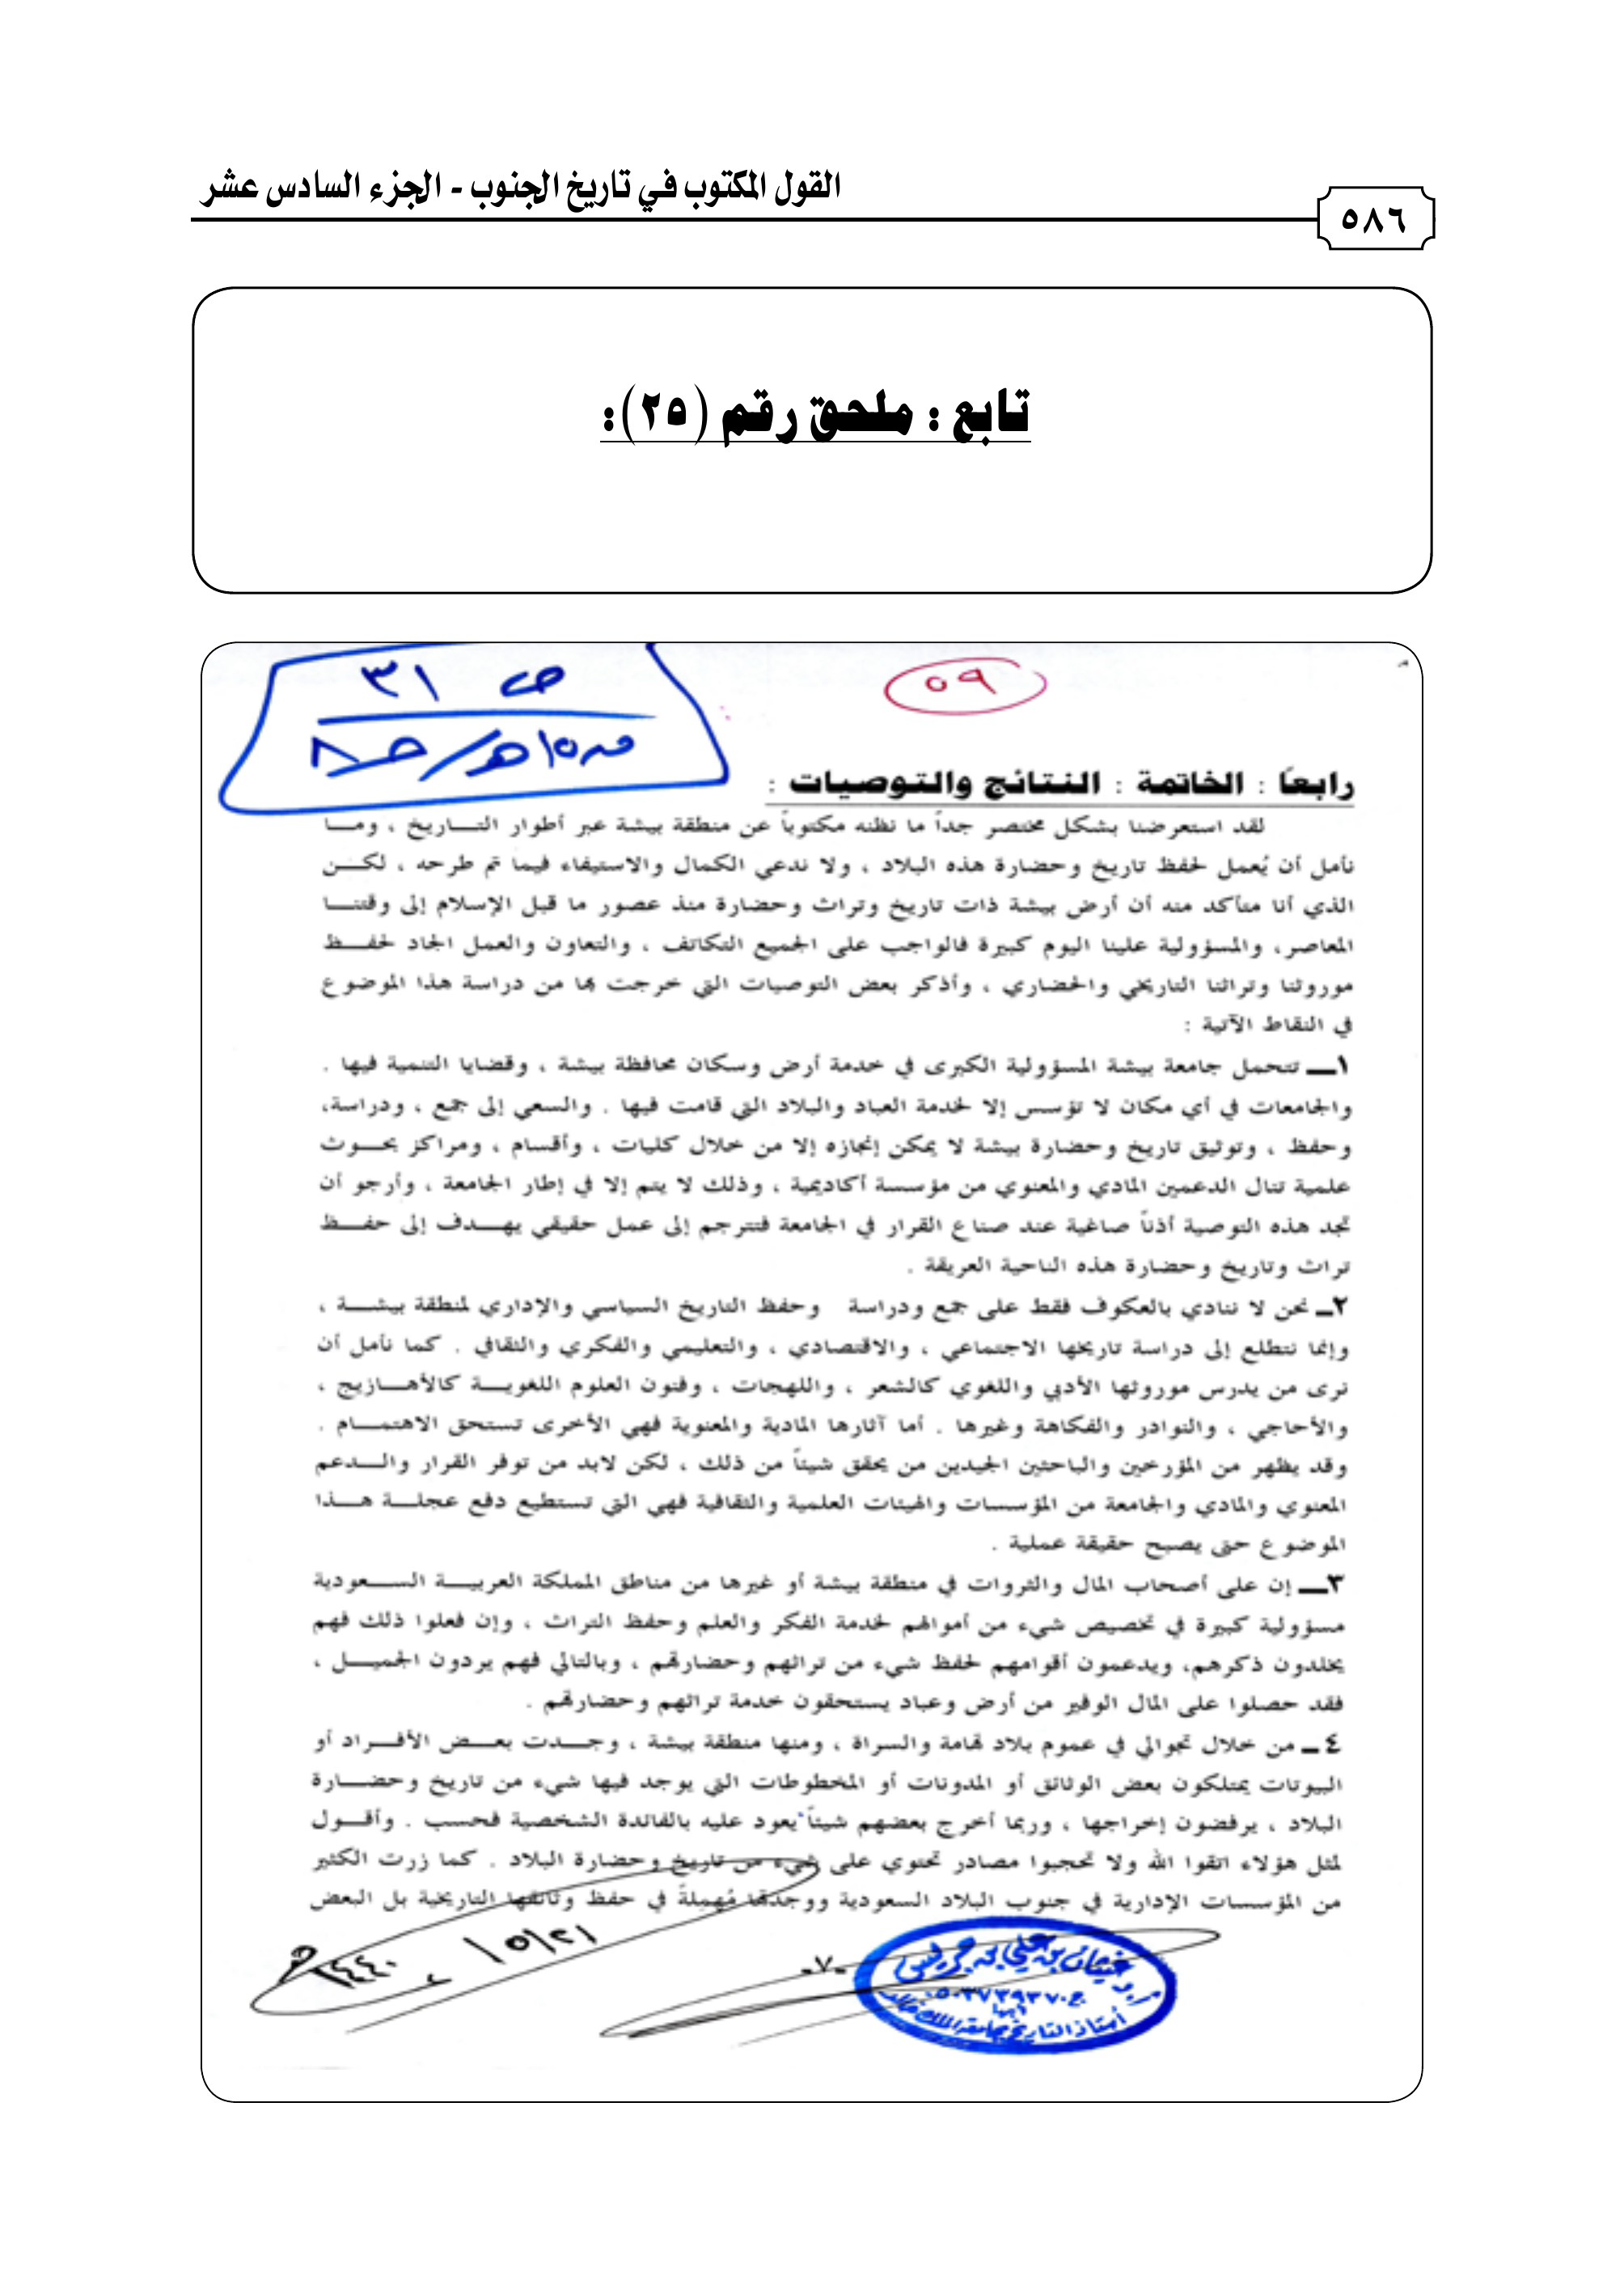 القول المكتوب في تاريخ الجنوب - الجزء السادس عشر
٥٨٦
تابع : ملحق رقم (٢٥):
ص ٣١
٥٩
رابعاً : الخاتمة : النتائج والتوصيات :
لقد استعرضنا بشكل مختصر جداً ما نظنه مكتوباً عن منطقة بيشة عبر أطوار التـــاريخ ، ومـــا
نأمل أن يُعمل لحفظ تاريخ وحضارة هذه البلاد ، ولا ندعي الكمال والاستيفاء فيما تم طرحه ، لكـــن
الذي أنا متأكد منه أن أرض بيشة ذات تاريخ وتراث وحضارة منذ عصور ما قبل الإسلام إلى وقتنـــا
المعاصر، والمسؤولية علينا اليوم كبيرة فالواجب على الجميع التكاتف ، والتعاون والعمل الجاد لحفـــظ
موروثنا وتراثنا التاريخي والحضاري ، وأذكر بعض التوصيات التي خرجت بها من دراسة هذا الموضوع
في النقاط الآتية :
١ــ تتحمل جامعة بيشة المسؤولية الكبرى في خدمة أرض وسكان محافظة بيشة ، وقضايا التنمية فيها .
والجامعات في أي مكان لا تؤسس إلا لخدمة العباد والبلاد التي قامت فيها . والسعي إلى جمع ، ودراسة،
وحفظ ، وتوثيق تاريخ وحضارة بيشة لا يمكن إنجازه إلا من خلال كليات ، وأقسام ، ومراكز بحـوث
علمية تنال الدعمين المادي والمعنوي من مؤسسة أكاديمية ، وذلك لا يتم إلا في إطار الجامعة ، وأرجو أن
تجد هذه التوصية أذناً صاغية عند صناع القرار في الجامعة فتترجم إلى عمل حقيقي يهـــدف إلى حفـــظ
تراث وتاريخ وحضارة هذه الناحية العريقة .
٢ــ نحن لا ننادي بالعكوف فقط على جمع ودراسة وحفظ التاريخ السياسي والإداري لمنطقة بيشـــة ،
وإنما نتطلع إلى دراسة تاريخها الاجتماعي ، والاقتصادي ، والتعليمي والفكري والثقافي . كما نأمل أن
نرى من يدرس موروثها الأدبي واللغوي كالشعر ، واللهجات ، وفنون العلوم اللغويـــة كالأهـــازيج ،
والأحاجي ، والنوادر والفكاهة وغيرها . أما آثارها المادية والمعنوية فهي الأخرى تستحق الاهتمـــام .
وقد يظهر من المؤرخين والباحثين الجيدين من يحقق شيئاً من ذلك ، لكن لابد من توفر القرار والـــدعم
المعنوي والمادي والجامعة من المؤسسات والهيئات العلمية والثقافية فهي التي تستطيع دفع عجلـــة هـــذا
الموضوع حتى يصبح حقيقة عملية .
٣ــ إن على أصحاب المال والثروات في منطقة بيشة أو غيرها من مناطق المملكة العربيـــة الســـعودية
مسؤولية كبيرة في تخصيص شيء من أموالهم لخدمة الفكر والعلم وحفظ التراث ، وإن فعلوا ذلك فهم
يخلدون ذكرهم، ويدعمون أقوامهم لحفظ شيء من تراثهم وحضارتهم ، وبالتالي فهم يردون الجميـــل ،
فقد حصلوا على المال الوفير من أرض وعباد يستحقون خدمة تراثهم وحضارتهم .
٤ــ من خلال تجوالي في عموم بلاد تهامة والسراة ، ومنها منطقة بيشة ، وجـــدت بعـــض الأفـــراد أو
البيوتات يمتلكون بعض الوثائق أو المدونات أو المخطوطات التي يوجد فيها شيء من تاريخ وحضـــارة
البلاد ، يرفضون إخراجها ، وربما أخرج بعضهم شيئاً يعود عليه بالفائدة الشخصية فحسب . وأقـــول
لمثل هؤلاء اتقوا الله ولا تحجبوا مصادر تحتوي على شيء من تاريخ وحضارة البلاد . كما زرت الكثير
من المؤسسات الإدارية في جنوب البلاد السعودية ووجدتها مُهملةً في حفظ وثائقها التاريخية بل البعض
٢١/٥/١٤٤٠هـ
-٧-
غيثان بن علي بن جريس
أستاذ التاريخ بجامعة الملك خالد
أبها